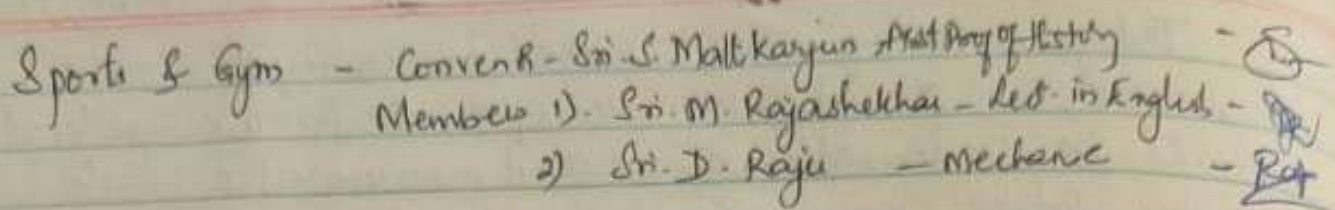 Sports & Gym - Convener - Sri. S. Mallikarjun, Asst Prof of History -
Members 1). Sri. M. Rajashekhar - Lect. in English -
2) Sri. D. Raju - Mechanic - Raj